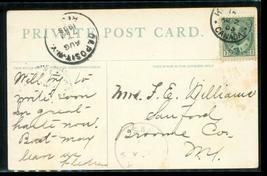 PRIVATE POST CARD.
DEPOSIT. N.Y.
AUG
CANADA
Will try to
write soon
in great
haste now.
But may
leave
Mrs. F. E. Williams
Sanford
Broome Co.
N.Y.